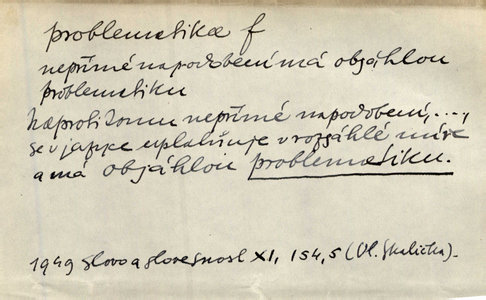 problematika f
nepřímé napodobení má objáhlou
problematiku
Naproti tomu nepřímé napodobení, ...,
se v jazyce uplatňuje v rozsáhlé míře
a má objáhlou problematiku.
1949 Slovo a slovesnost XI, 154, 5 (Vl. Skalička).